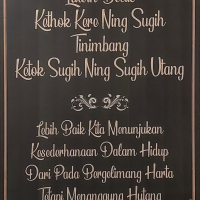 Kethok Kere Ning Sugih
Tinimbang
Ketok Sugih Ning Sugih Utang
Lebih Baik Kita Menunjukan
Kesederhanaan Dalam Hidup
Dari Pada Bergelimang Harta
Tetapi Menanggung Hutang